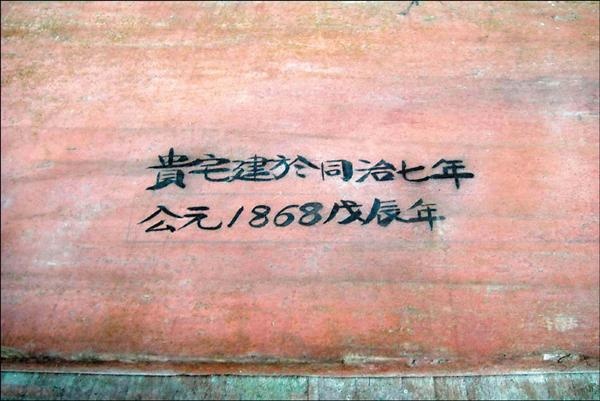 貴宅建於同治七年
公元1868戊辰年